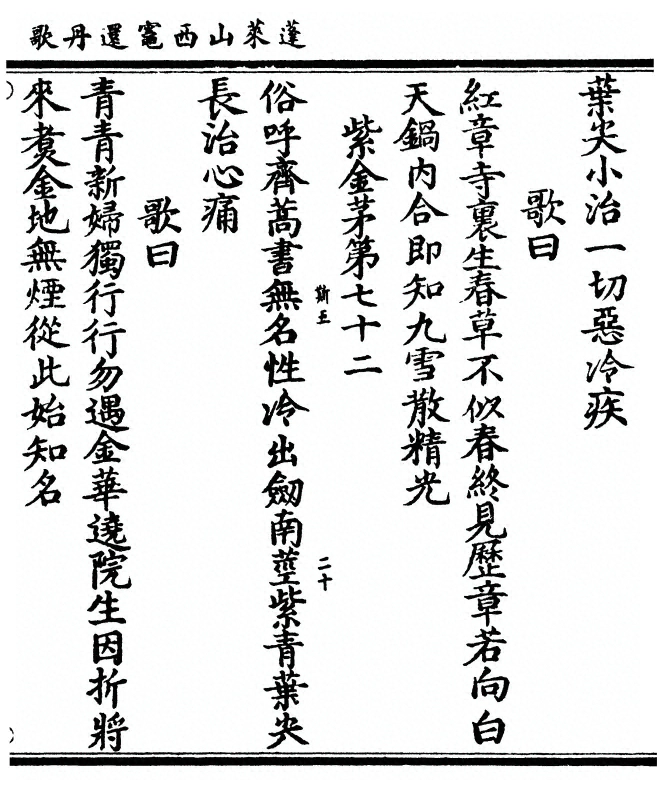 蓬萊山西竈還丹歌
葉尖小治一切惡冷疾
歌曰
紅章寺裏生春草不似春終見歷章若向白
天鍋内合即知九雪散精光
紫金茅第七十二
斯五 二十
俗呼齊蒿書無名性冷出劒南莖紫青葉尖
長治心痛
歌曰
青青新婦獨行行勿遇金華遶院生因折將
來煑金地無煙從此始知名